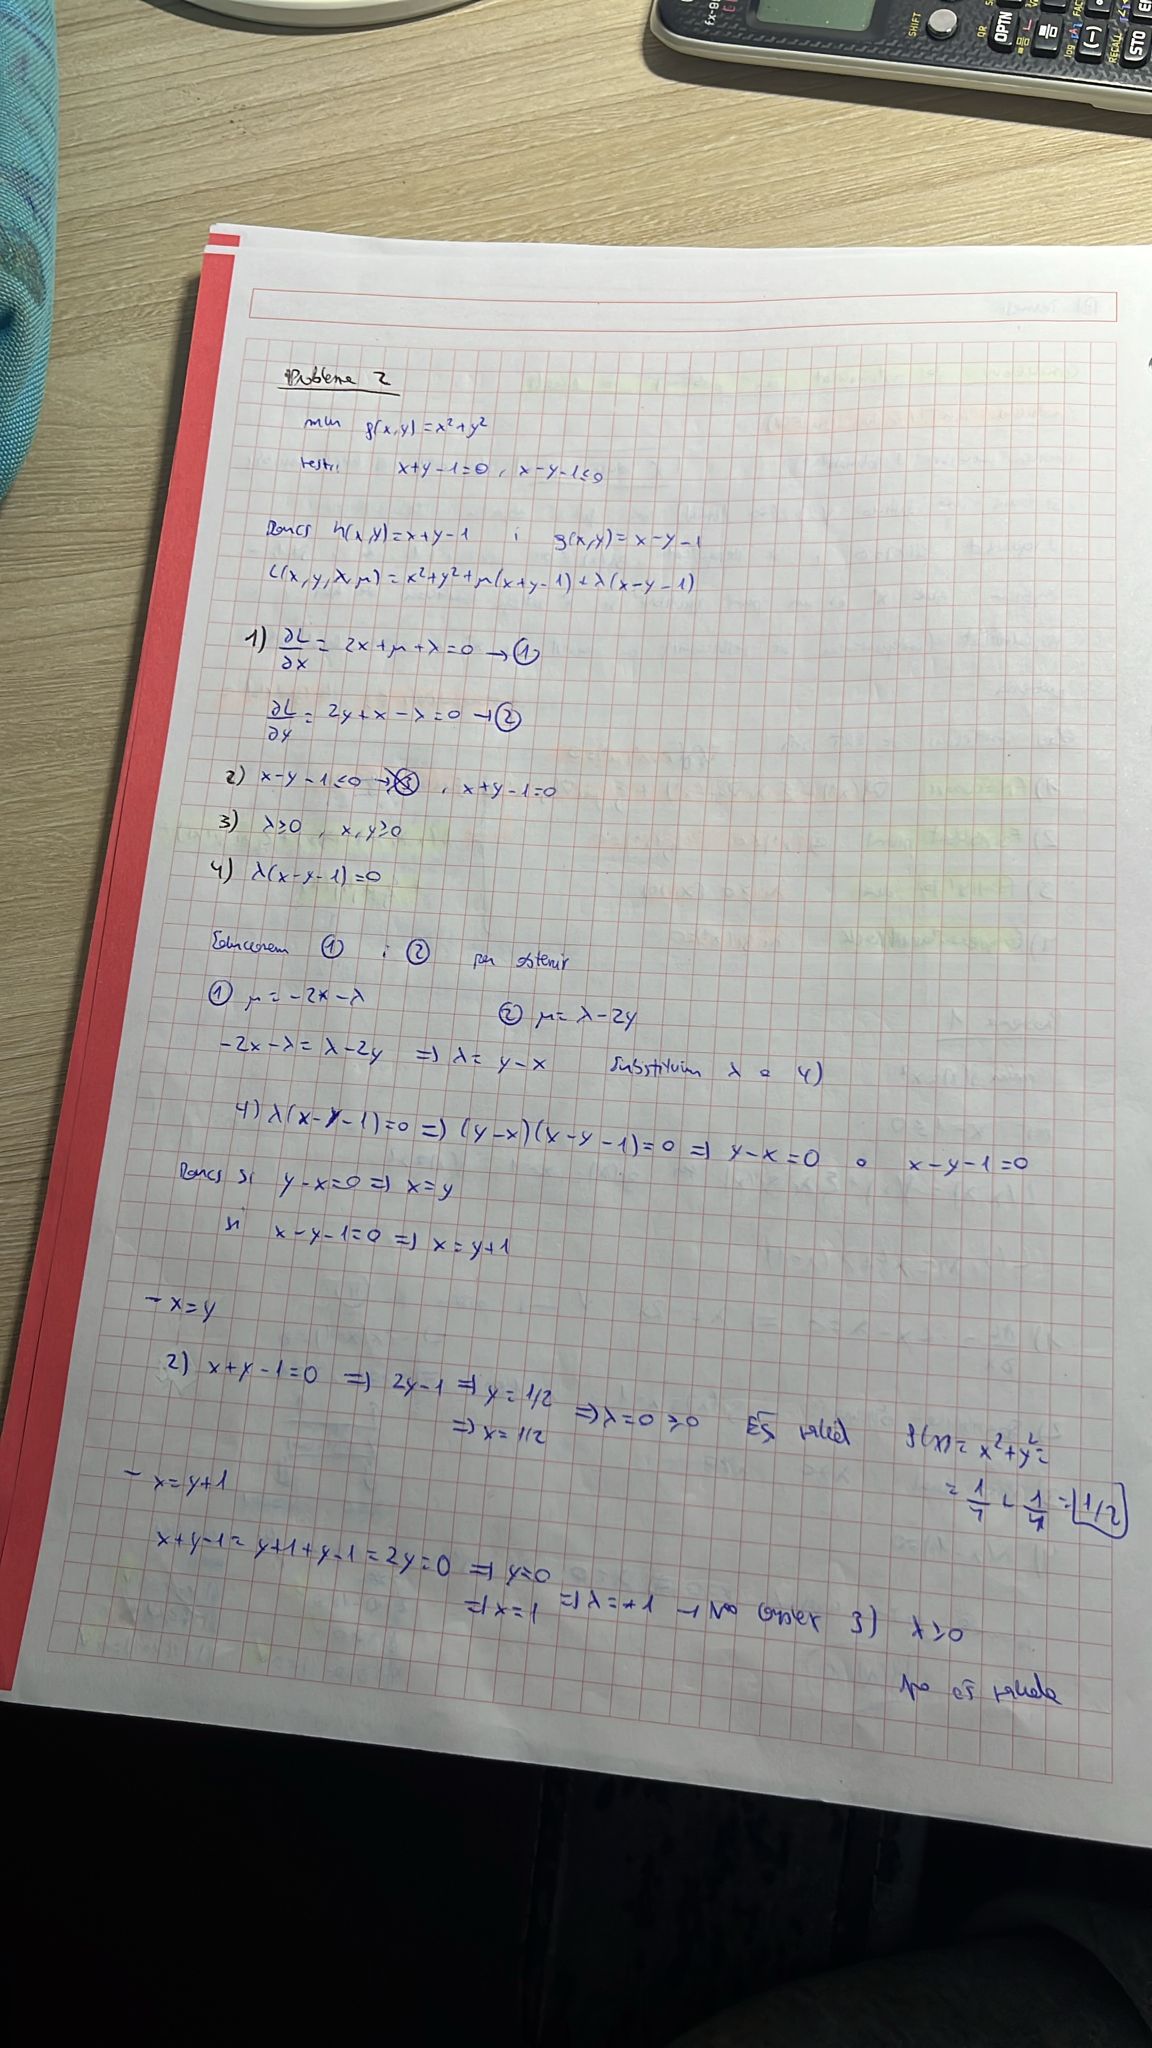 fx-9
SHIFT
QR
OPTN
(-)
RECALL
STO
Problema 2
min f(x,y) = x² + y²
restr. x+y-1=0 , x-y-1≤0
Doncs h(x,y) = x+y-1 i g(x,y) = x-y-1
L(x,y,λ,μ) = x²+y²+μ(x+y-1)+λ(x-y-1)
1) ∂L/∂x = 2x+μ+λ=0 → ①
∂L/∂y = 2y+x-λ=0 → ②
2) x-y-1≤0 → ③ , x+y-1=0
3) λ≥0 , x,y≥0
4) λ(x-y-1)=0
① i ② per obtenir
① μ=-2x-λ ② μ=λ-2y
-2x-λ=λ-2y ⇒ λ= y-x Substituim λ a 4)
4) λ(x-y-1)=0 ⇒ (y-x)(x-y-1)=0 ⇒ y-x=0 o x-y-1=0
Doncs si y-x=0 ⇒ x=y
si x-y-1=0 ⇒ x=y+1
- x=y
2) x+y-1=0 ⇒ 2y-1 ⇒ y=1/2
⇒ x=1/2 ⇒ λ=0≥0 És vàlid f(x)= x²+y²=
= 1/4 + 1/4 = 1/2
- x=y+1
x+y-1= y+1+y-1=2y=0 ⇒ y=0
⇒ x=1 ⇒ λ=-1 → No 3) λ≥0
No és